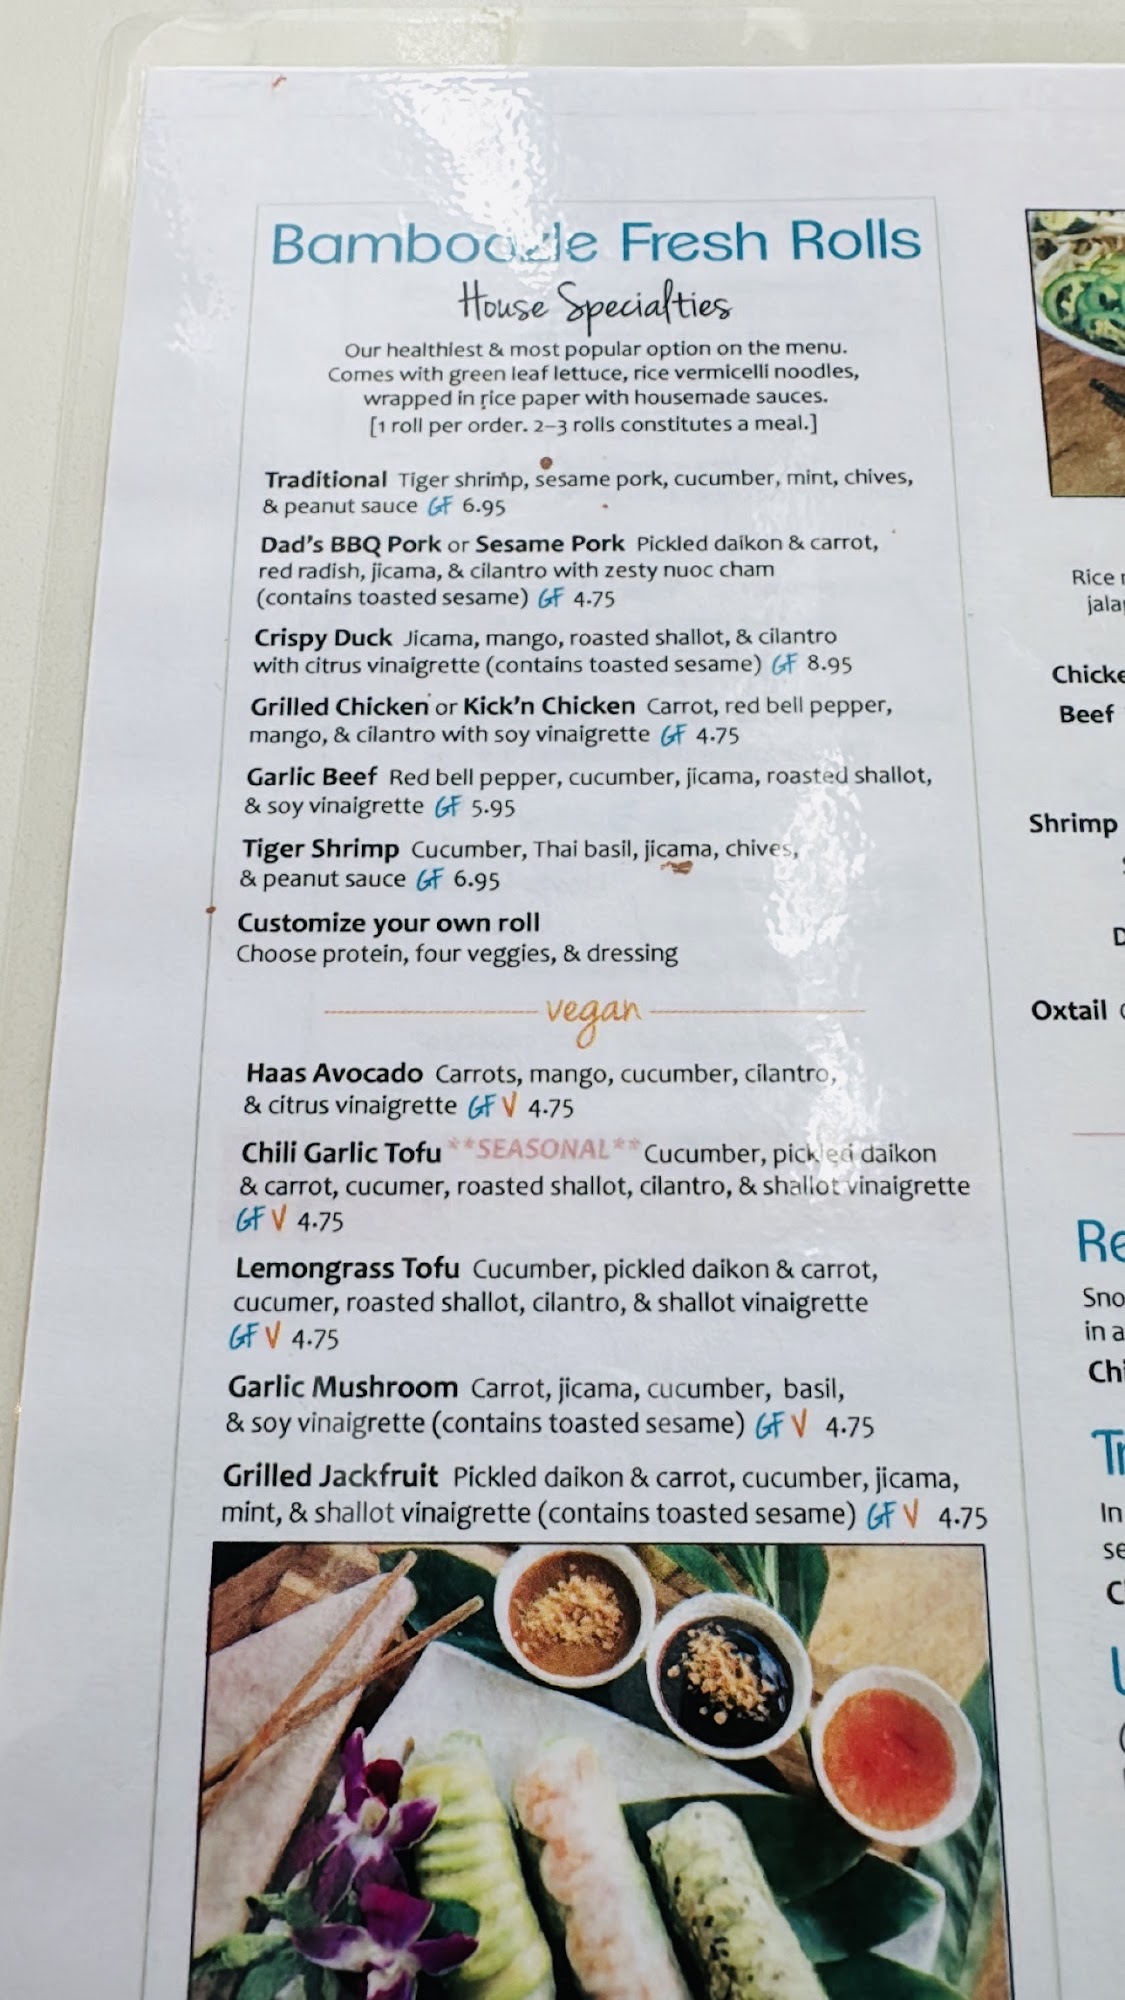 Bamboozle Fresh Rolls
House Specialties
Our healthiest & most popular option on the menu.
Comes with green leaf lettuce, rice vermicelli noodles,
wrapped in rice paper with housemade sauces.
[1 roll per order. 2–3 rolls constitutes a meal.]
Traditional Tiger shrimp, sesame pork, cucumber, mint, chives,
& peanut sauce GF 6.95
Dad's BBQ Pork or Sesame Pork Pickled daikon & carrot,
red radish, jicama, & cilantro with zesty nuoc cham
(contains toasted sesame) GF 4.75
Crispy Duck Jicama, mango, roasted shallot, & cilantro
with citrus vinaigrette (contains toasted sesame) GF 8.95
Grilled Chicken or Kick'n Chicken Carrot, red bell pepper,
mango, & cilantro with soy vinaigrette GF 4.75
Garlic Beef Red bell pepper, cucumber, jicama, roasted shallot,
& soy vinaigrette GF 5.95
Tiger Shrimp Cucumber, Thai basil, jicama, chives,
& peanut sauce GF 6.95
Customize your own roll
Choose protein, four veggies, & dressing
vegan
Haas Avocado Carrots, mango, cucumber, cilantro,
& citrus vinaigrette GF V 4.75
Chili Garlic Tofu **SEASONAL** Cucumber, pickled daikon
& carrot, cucumer, roasted shallot, cilantro, & shallot vinaigrette
GF V 4.75
Lemongrass Tofu Cucumber, pickled daikon & carrot,
cucumer, roasted shallot, cilantro, & shallot vinaigrette
GF V 4.75
Garlic Mushroom Carrot, jicama, cucumber, basil,
& soy vinaigrette (contains toasted sesame) GF V 4.75
Grilled Jackfruit Pickled daikon & carrot, cucumber, jicama,
mint, & shallot vinaigrette (contains toasted sesame) GF V 4.75
Rice
Beef
Shrimp
Oxtail
in a
In